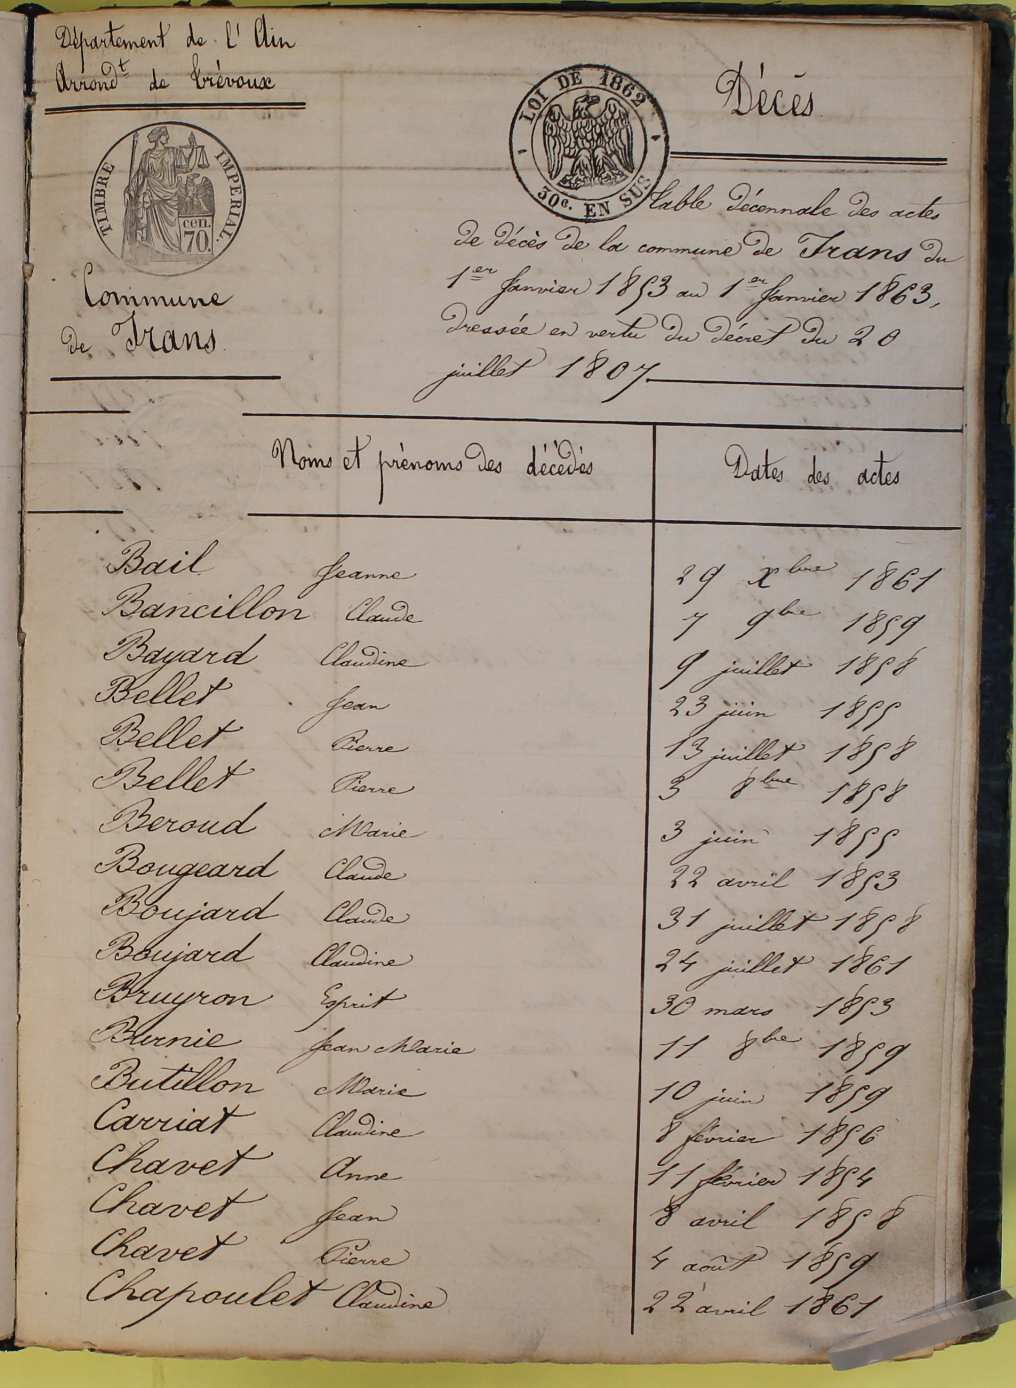 Département de l'Ain
Arrond^t de Trévoux
TIMBRE IMPERIAL
cen.
70.
Commune
de Frans
LOI DE 1862
30c. EN SUS
Décès
Table décennale des actes
de décès de la commune de Frans du
1er Janvier 1853 au 1er Janvier 1863,
dressée en vertu du décret du 20
juillet 1807
Noms et prénoms des décédés Dates des actes
Bail Jeanne 29 Xbre 1861
Bancillon Claude 7 9bre 1859
Bayard Claudine 9 juillet 1858
Bellet Jean 23 juin 1855
Bellet Pierre 13 juillet 1858
Bellet Pierre 3 8bre 1858
Beroud Marie 3 juin 1855
Bougeard Claude 22 avril 1853
Boujard Claude 31 juillet 1858
Boujard Claudine 24 juillet 1861
Bruyron Esprit 30 mars 1853
Burnie Jean Marie 11 8bre 1859
Butillon Marie 10 juin 1859
Carriat Claudine 8 février 1856
Chavet Anne 11 février 1854
Chavet Jean 8 avril 1858
Chavet Pierre 4 août 1859
Chapoulet Claudine 22 avril 1861